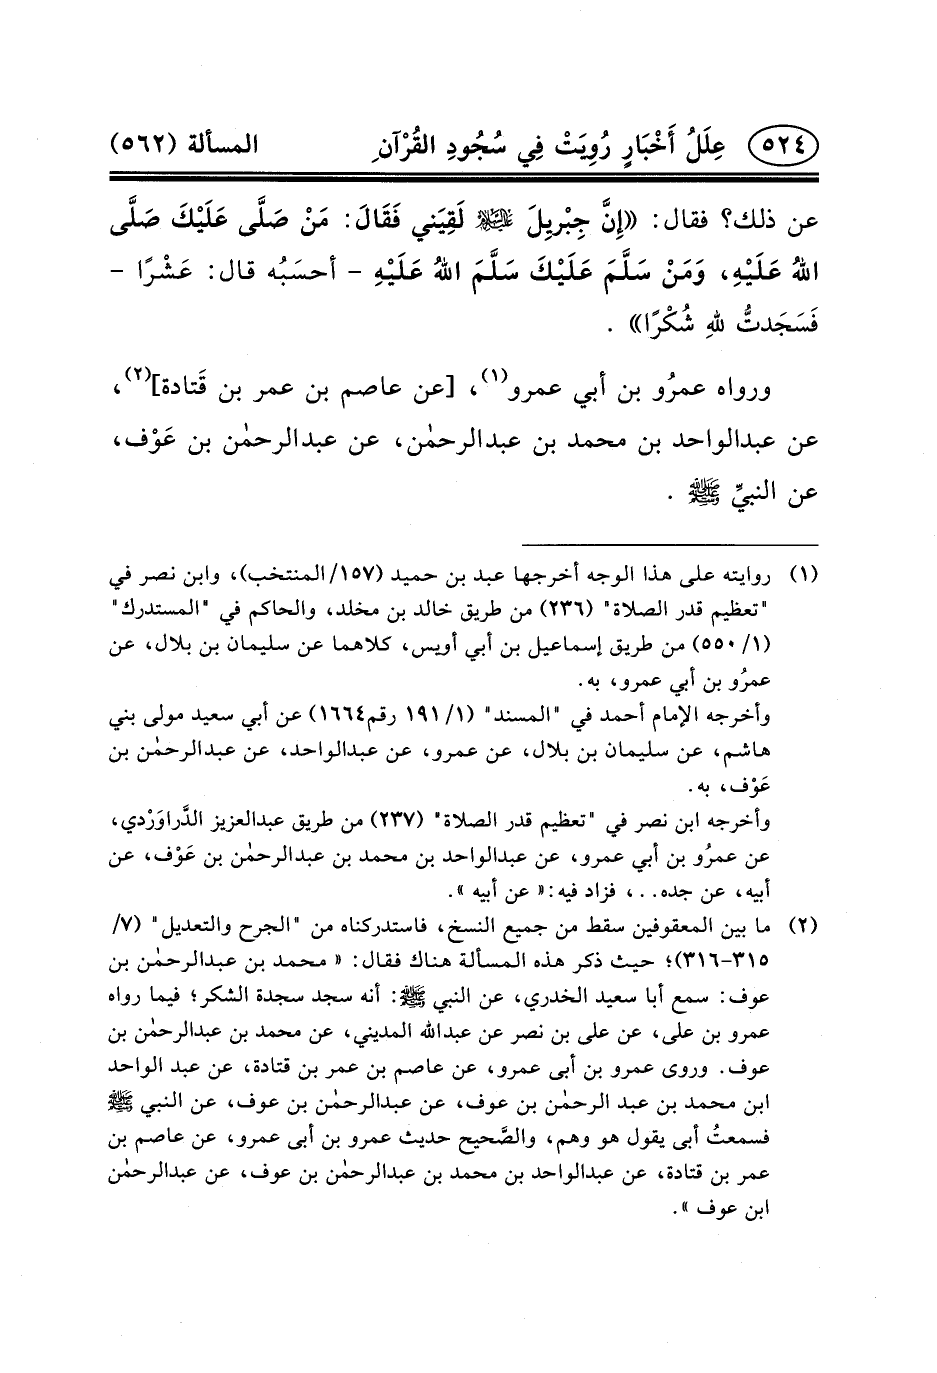 ٥٢٤ عِلَلُ أَخْبَارٍ رُوِيَتْ فِي سُجُودِ القُرْآنِ المسألة (٥٦٢)
عن ذلك؟ فقال: «إِنَّ جِبْرِيلَ عليه السلام لَقِيَنِي فَقَالَ: مَنْ صَلَّى عَلَيْكَ صَلَّى
اللهُ عَلَيْهِ، وَمَنْ سَلَّمَ عَلَيْكَ سَلَّمَ اللهُ عَلَيْهِ - أحسَبُه قال: عَشْرًا -
فَسَجَدتُّ للهِ شُكْرًا» .
ورواه عمرُو بن أبي عمرو(١)، [عن عاصم بن عمر بن قَتادة](٢)،
عن عبدالواحد بن محمد بن عبدالرحمٰن، عن عبدالرحمٰن بن عَوْف،
عن النبيِّ ﷺ .
(١) روايته على هذا الوجه أخرجها عبد بن حميد (١٥٧/المنتخب)، وابن نصر في
"تعظيم قدر الصلاة" (٢٣٦) من طريق خالد بن مخلد، والحاكم في "المستدرك"
(١/ ٥٥٠) من طريق إسماعيل بن أبي أويس، كلاهما عن سليمان بن بلال، عن
عمرُو بن أبي عمرو، به.
وأخرجه الإمام أحمد في "المسند" (١/ ١٩١ رقم١٦٦٤) عن أبي سعيد مولى بني
هاشم، عن سليمان بن بلال، عن عمرو، عن عبدالواحد، عن عبدالرحمٰن بن
عَوْف، به.
وأخرجه ابن نصر في "تعظيم قدر الصلاة" (٢٣٧) من طريق عبدالعزيز الدَّراوَرْدي،
عن عمرُو بن أبي عمرو، عن عبدالواحد بن محمد بن عبدالرحمٰن بن عَوْف، عن
أبيه، عن جده. . ، فزاد فيه:« عن أبيه ».
(٢) ما بين المعقوفين سقط من جميع النسخ، فاستدركناه من "الجرح والتعديل" (٧/
٣١٥-٣١٦)؛ حيث ذكر هذه المسألة هناك فقال: « محمد بن عبدالرحمٰن بن
عوف: سمع أبا سعيد الخدري، عن النبي ﷺ: أنه سجد سجدة الشكر؛ فيما رواه
عمرو بن على، عن على بن نصر عن عبدالله المديني، عن محمد بن عبدالرحمٰن بن
عوف. وروى عمرو بن أبى عمرو، عن عاصم بن عمر بن قتادة، عن عبد الواحد
ابن محمد بن عبد الرحمٰن بن عوف، عن عبدالرحمٰن بن عوف، عن النبي ﷺ
فسمعتُ أبى يقول هو وهم، والصَّحيح حديث عمرو بن أبى عمرو، عن عاصم بن
عمر بن قتادة، عن عبدالواحد بن محمد بن عبدالرحمٰن بن عوف، عن عبدالرحمٰن
ابن عوف ».